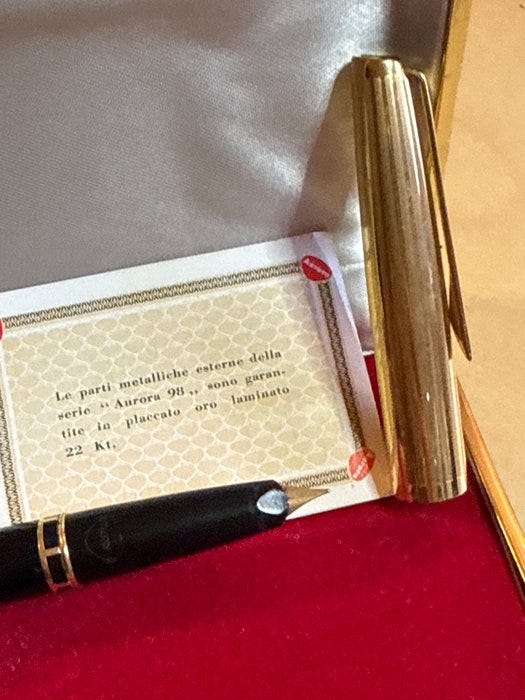 Aurora
Le parti metalliche esterne della
serie “ Aurora 98 „ sono garan-
tite in placcato oro laminato
22 Kt.